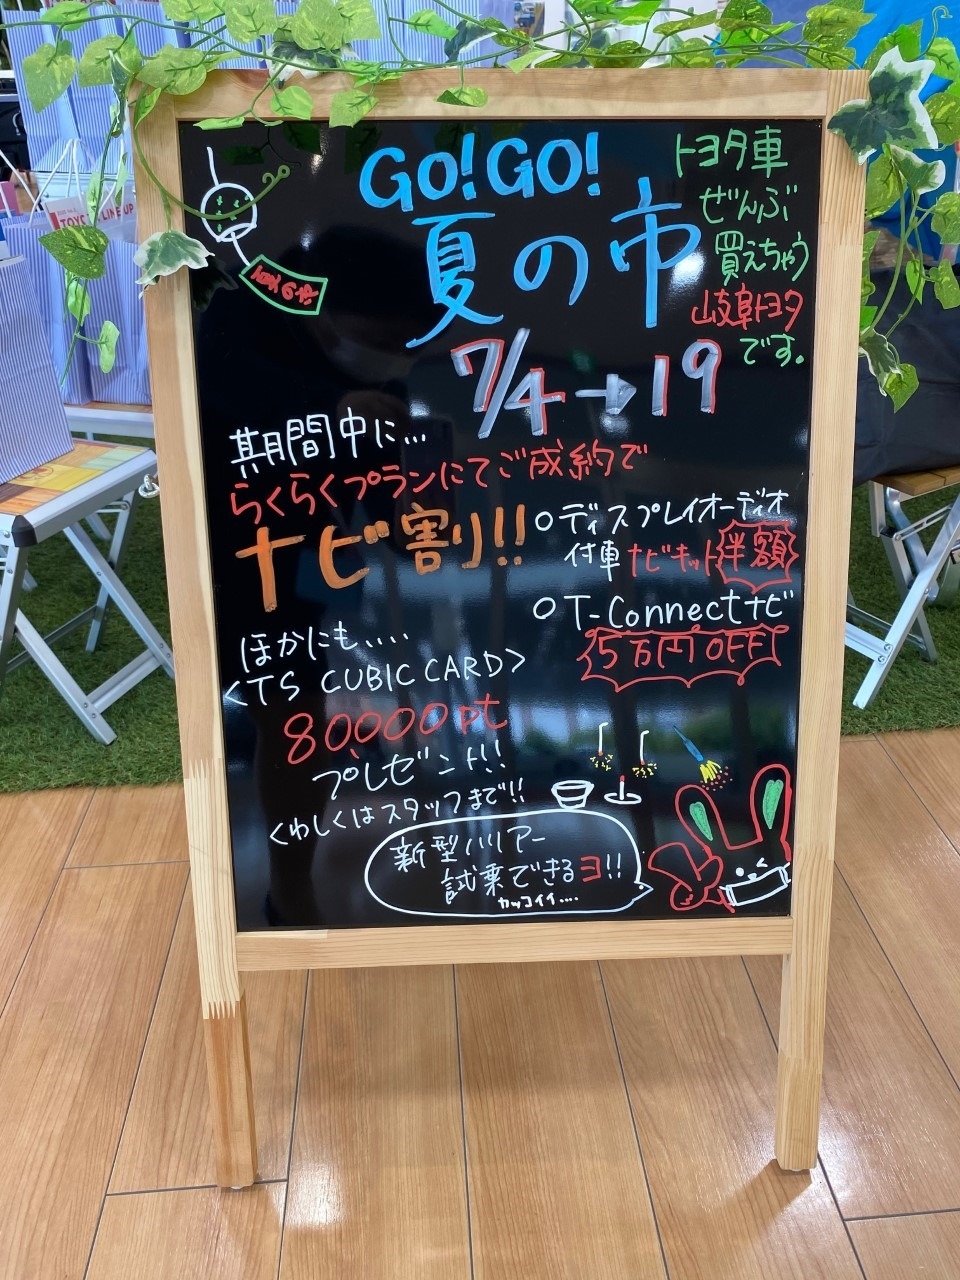 GO!GO!
夏の市
トヨタ車
ぜんぶ
買えちゃう
岐阜トヨタ
です。
夏の市
7/4→19
期間中に…
らくらくプランにてご成約で
ナビ割り!!
○ディスプレイオーディオ
付車ナビキット半額
○T-Connectナビ
5万円OFF
ほかにも.....
<TS CUBIC CARD>
80,000pt
プレゼント!!
くわしくはスタッフまで!!
新型ハリアー
試乗できるヨ!!
カッコイイ....
LINE UP